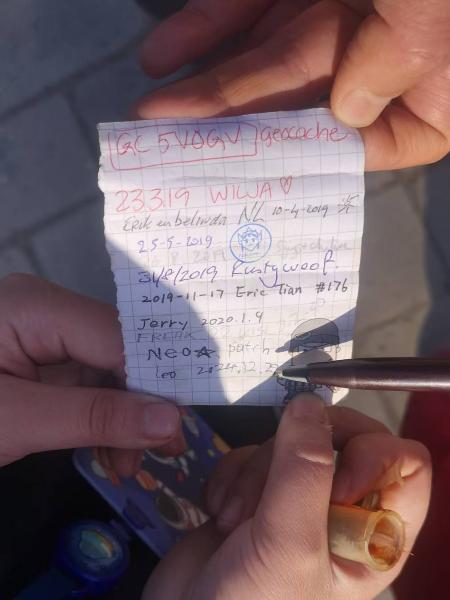 GC 5V0GV geocache
23.3.19 WILJA ♡
Erik en belinda NL 10-4-2019
25-5-2019
31/8/2019 Rustywoof.
2019-11-17 Eric Tian #176
Jerry 2020.1.9
FREAK
Neo☆ patch
Leo 2024.12.25